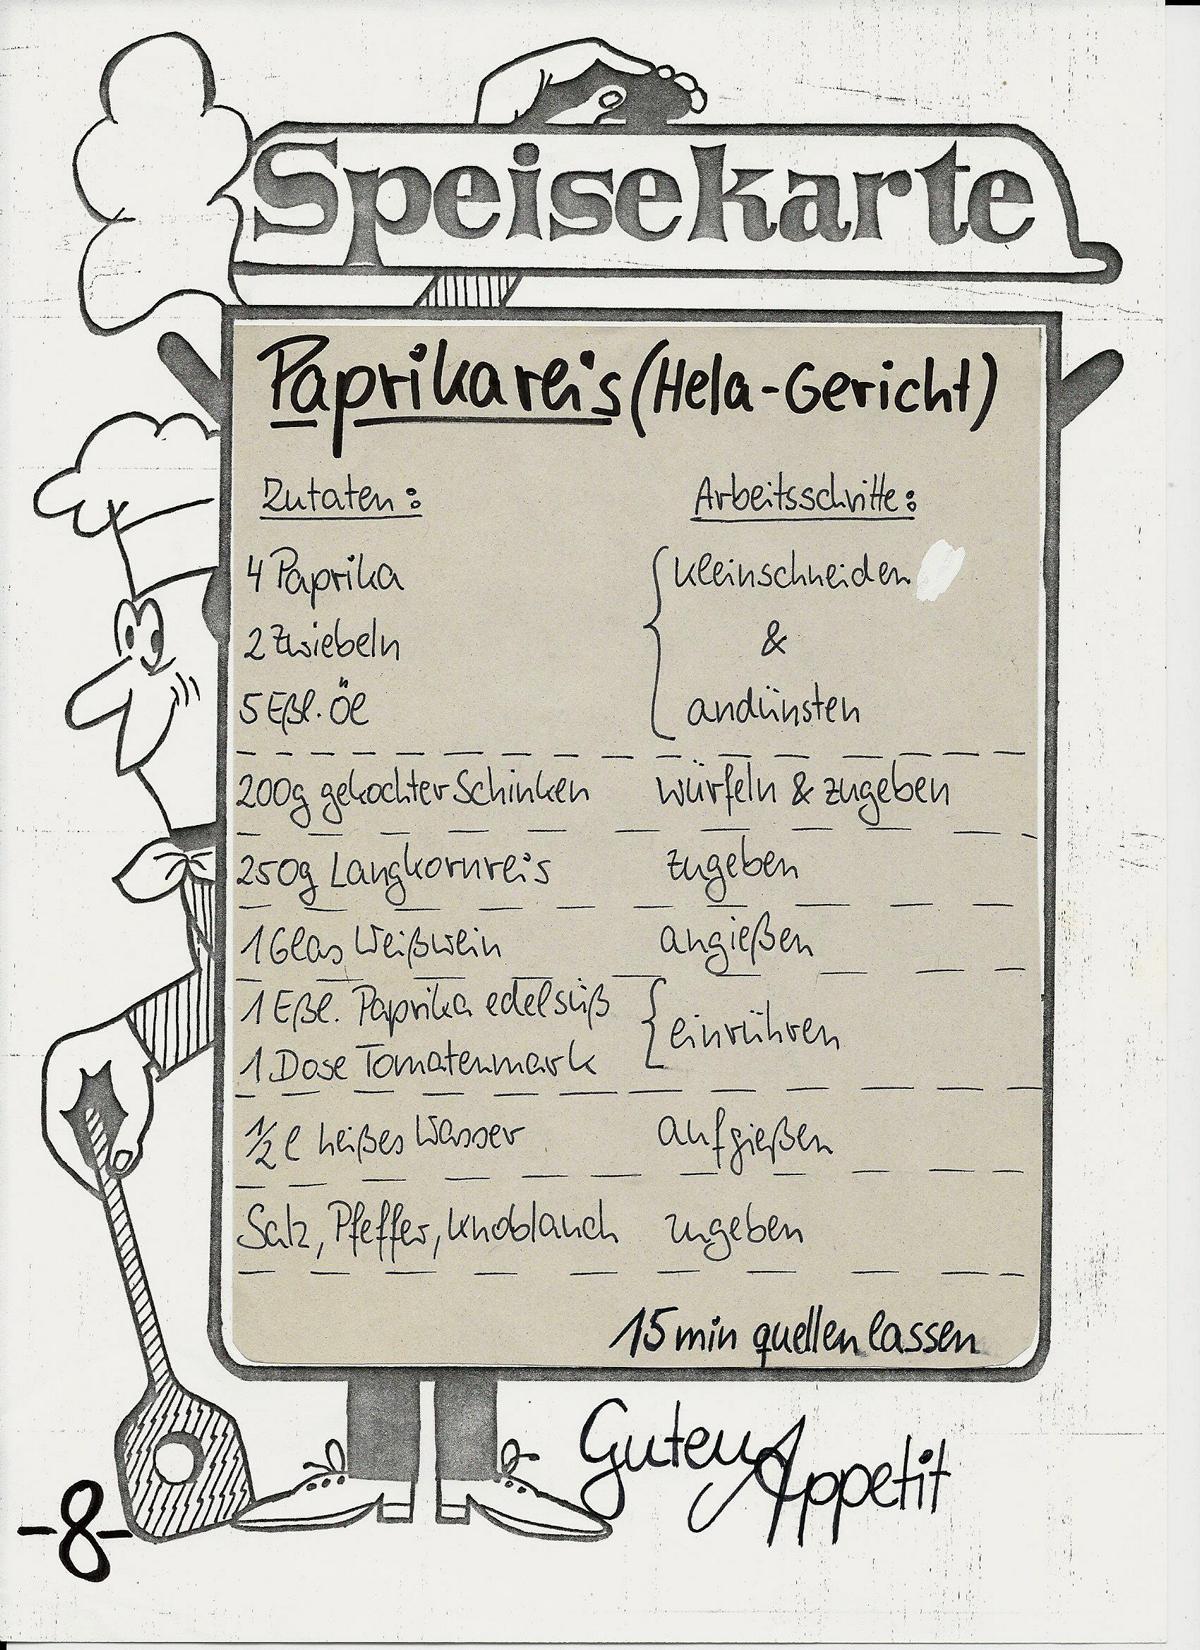 Speisekarte
Paprikareis (Hela-Gericht)
Zutaten: Arbeitsschritte:
4 Paprika kleinschneiden
2 Zwiebeln &
5 Eßl. Öl andünsten
200g gekochter Schinken würfeln & zugeben
250g Langkornreis zugeben
1 Glas Weißwein angießen
1 Eßl. Paprika edelsüß
einrühren
1 Dose Tomatenmark
1/2 l heißes Wasser aufgießen
Salz, Pfeffer, Knoblauch zugeben
15 min quellen lassen
Guten Appetit
-8-